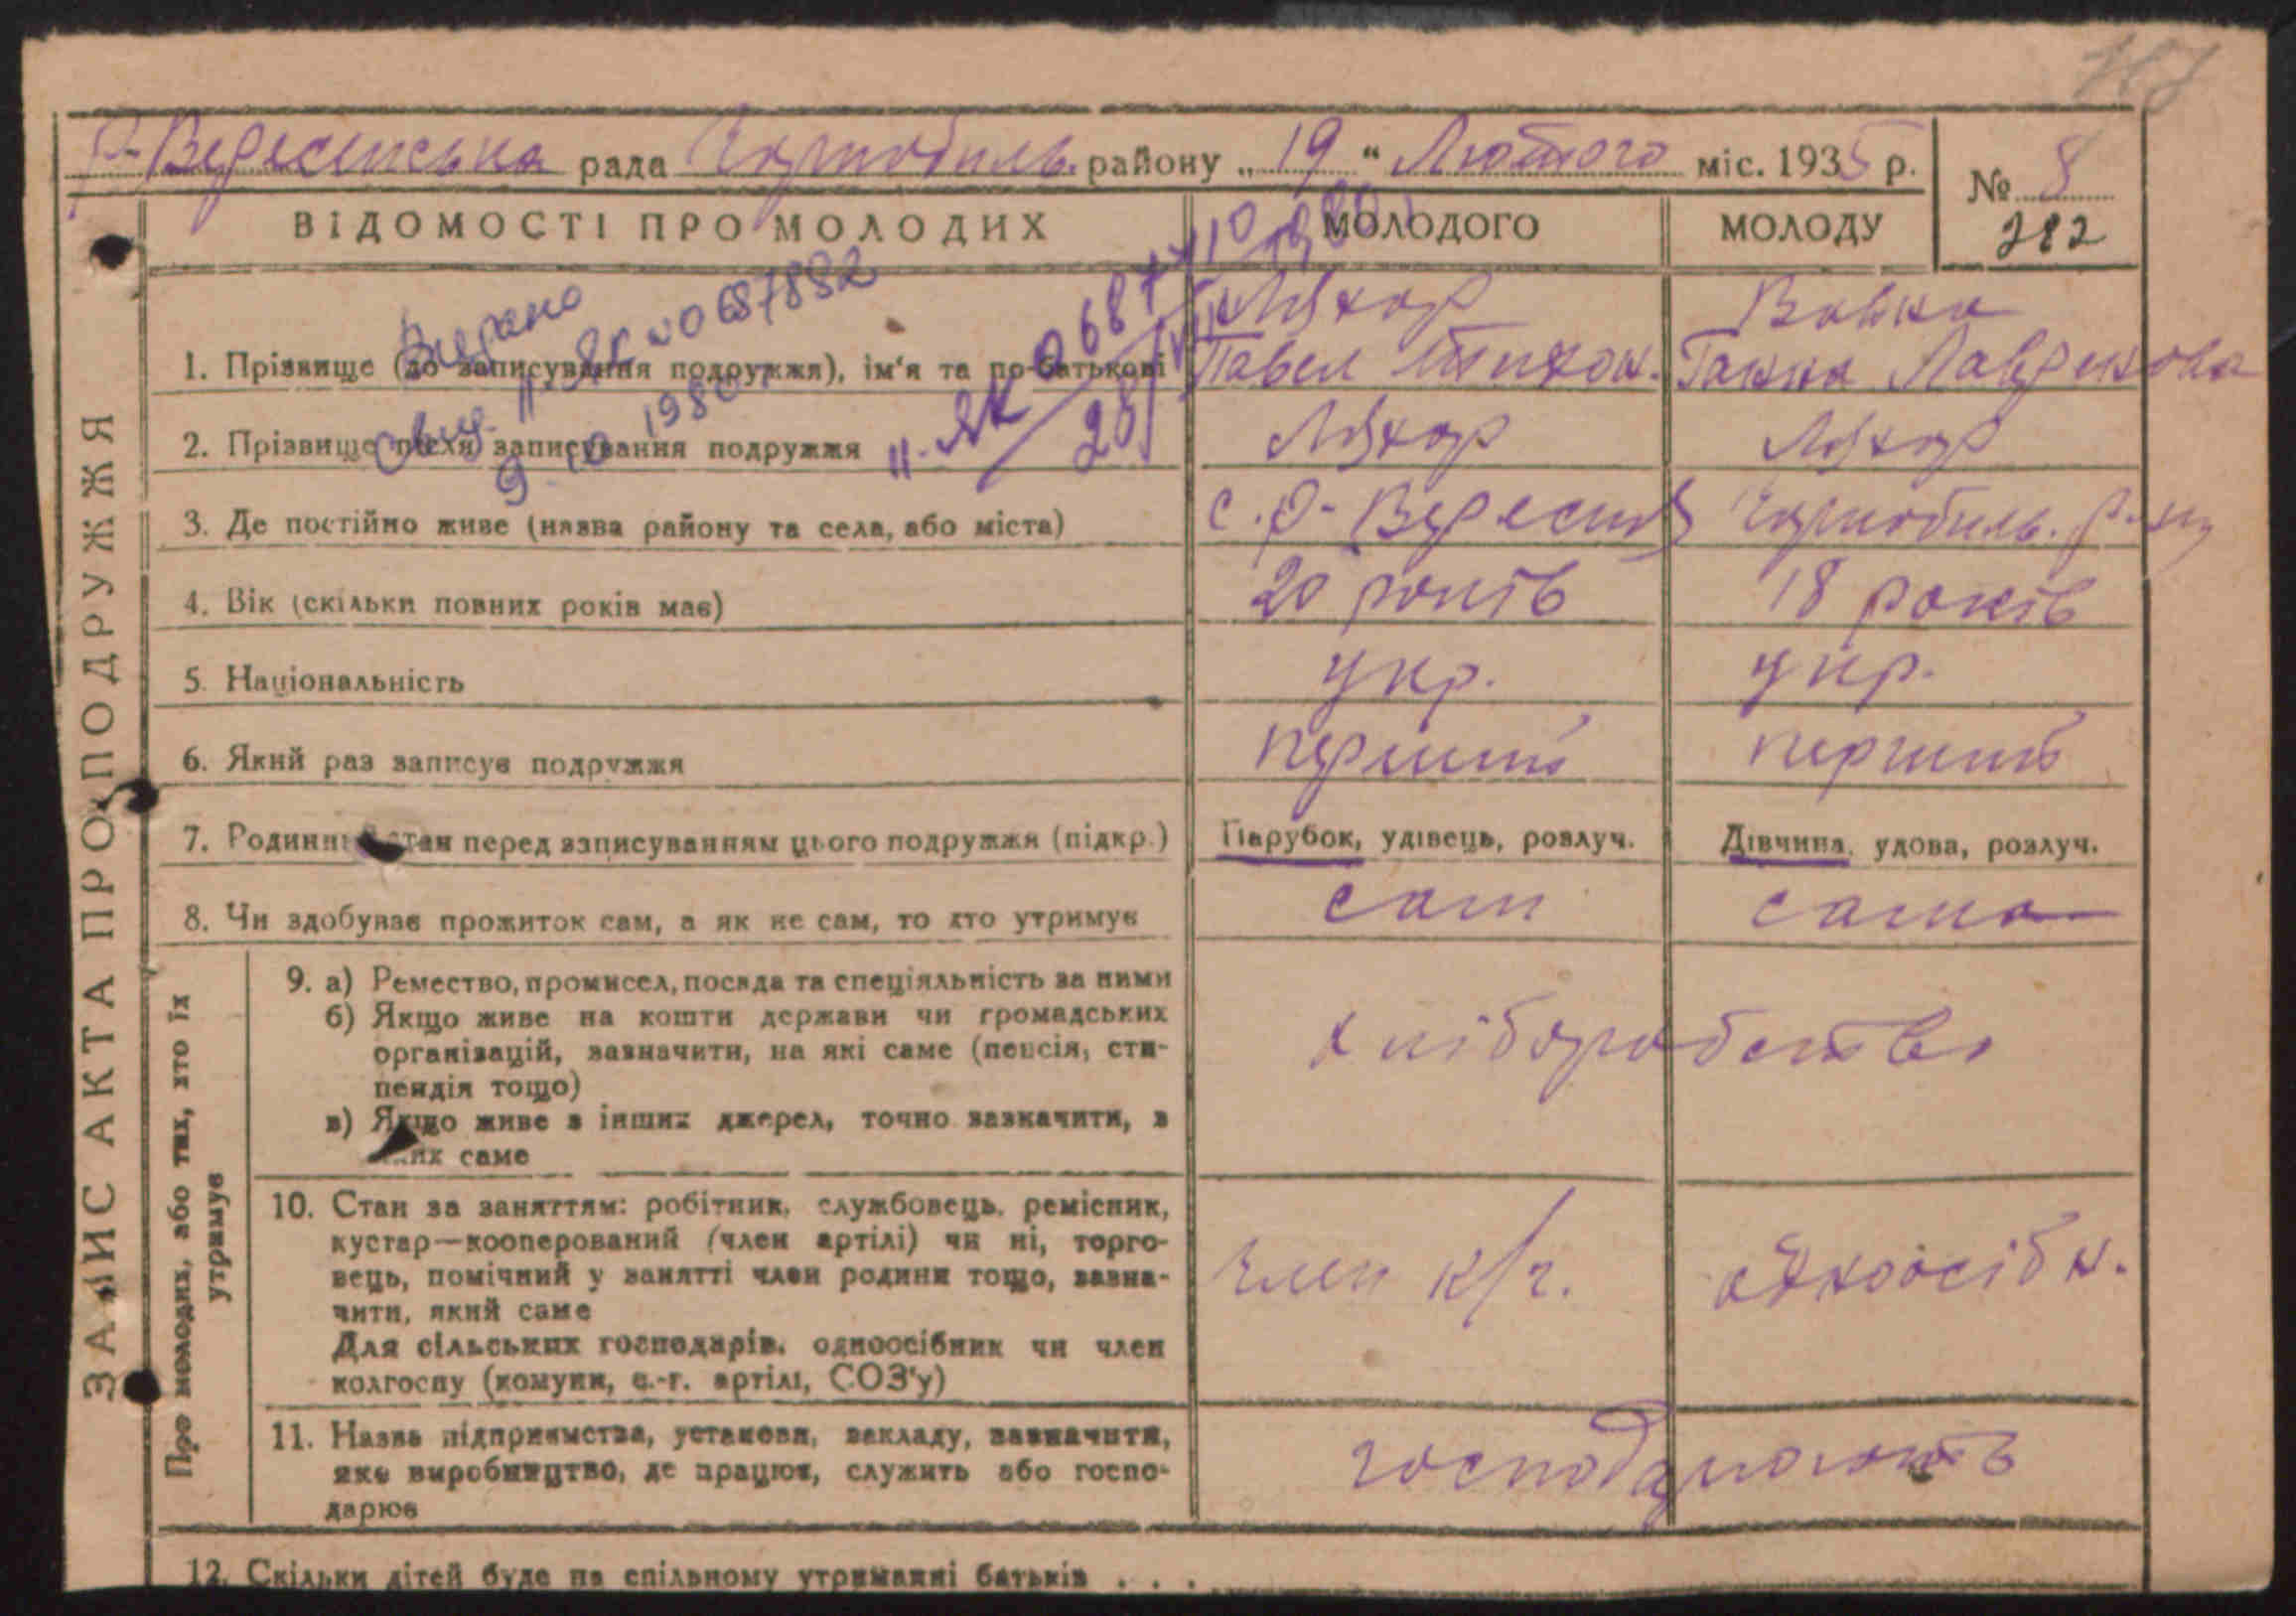 Р-Вересенська рада Чорнобиль. району „19“ Лютого міс. 1935 р.
№ 8
282
ВІДОМОСТІ ПРО МОЛОДИХ
МОЛОДОГО
МОЛОДУ
ЗАПИС АКТА ПРО ПОДРУЖЖЯ
Видано
свід. II-ЯК № 0687892
9 10 1980
II-ЯК
28/VII
1. Прізвище (до записування подружжя), ім‘я та по-батькові
Павел Тихон.
Вовка
Ганна Лавренова
2. Прізвище після записування подружжя
3. Де постійно живе (назва району та села, або міста)
с. Р-Вересня Чорнобиль. р-ну
4. Вік (скільки повних років має)
20 років
18 років
5. Національність
укр.
укр.
6. Який раз записує подружжя
перший
перший
7. Родинний стан перед записуванням цього подружжя (підкр.)
Парубок, удівець, розлуч.
Дівчина, удова, розлуч.
8. Чи здобуває прожиток сам, а як не сам, то хто утримує
сам
сама
Про молодих, або тих, хто їх
утримує
9. а) Ремество, промисел, посада та спеціяльність за ними
б) Якщо живе на кошти держави чи громадських
організацій, зазначити, на які саме (пенсія, сти-
пендія тощо)
в) Якщо живе з інших джерел, точно зазначити, з
яких саме
хліборобство
10. Стан за заняттям: робітник, службовець, ремісник,
кустар—кооперований (член артілі) чи ні, торго-
вець, помічний у занятті член родини тощо, зазна-
чити, який саме
Для сільських господарів, одноосібник чи член
колгоспу (комуни, с.-г. артілі, СОЗ‘у)
член к/г.
одноосібн.
11. Назва підприємства, установи, закладу, зазначити,
яке виробництво, де працює, служить або госпо-
дарює
господарюють
12. Скільки дітей буде на спільному утриманні батьків . . .